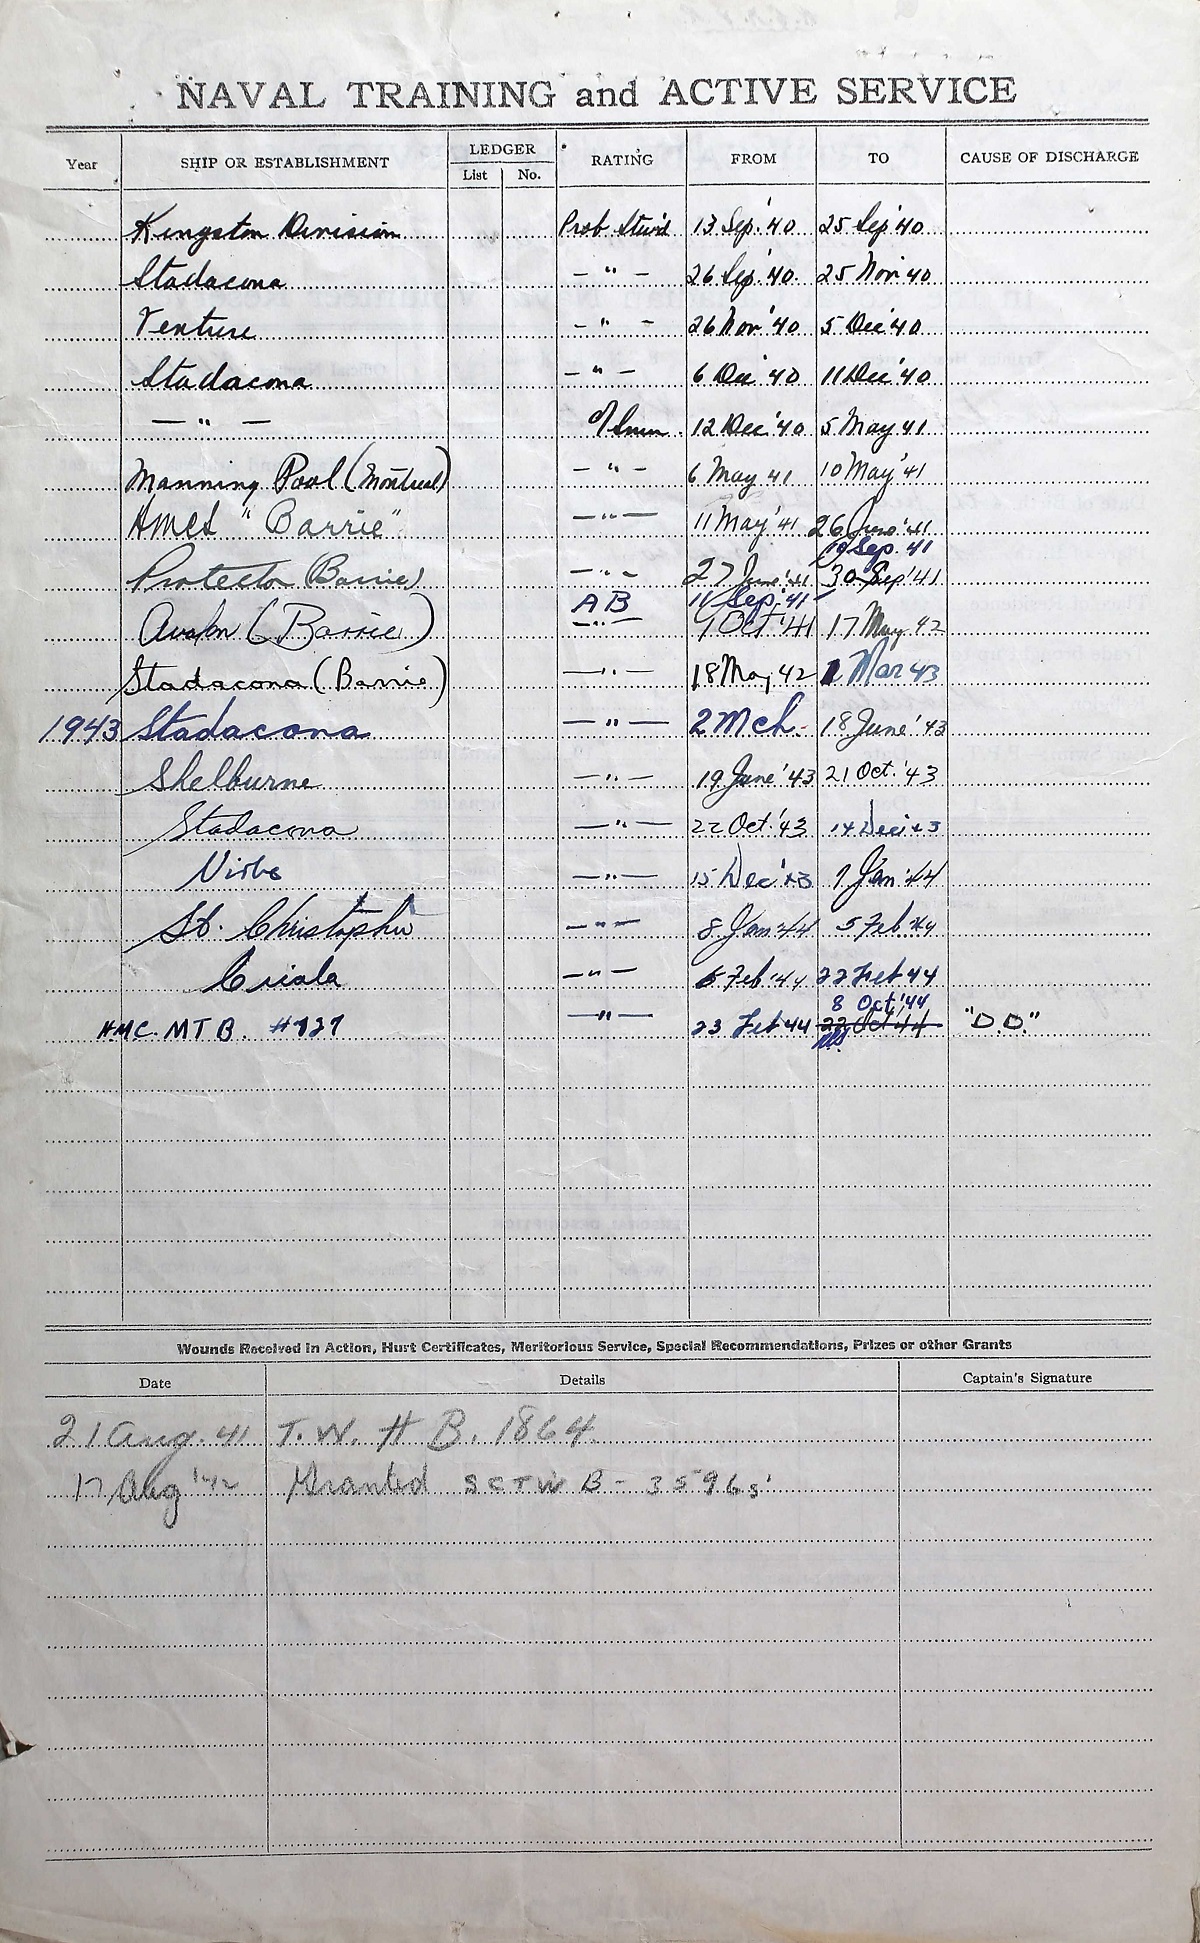 NAVAL TRAINING and ACTIVE SERVICE
Year SHIP OR ESTABLISHMENT LEDGER List No. RATING FROM TO CAUSE OF DISCHARGE
Kingston Division Prob. Stwd 13 Sep.'40 25 Sep '40
Stadacona — " — 26 Sep '40. 25 Nov '40
Venture — " — 26 Nov '40 5 Dec '40
Stadacona — " — 6 Dec '40 11 Dec '40
— " — 12 Dec '40 5 May 41
Manning Pool (Montreal) — " — 6 May 41 10 May '41
HMCS "Barrie" — " — 11 May '41 26 June '41
10 Sep. 41
Protector (Barrie) — " — 27 June '41 30 Sep '41
AB 11 Sep '41
Avalon (Barrie) — " — 1 Oct '41 17 May 42
Stadacona (Barrie) — " — 18 May 42 1 Mar 43
1943 Stadacona — " — 2 Mch. 18 June '43
Shelburne — " — 19 June '43 21 Oct. '43
Stadacona — " — 22 Oct. '43 14 Dec '43
Niobe — " — 15 Dec '43 7 Jan '44
St. Christopher — " — 8 Jan '44 5 Feb '44
— " — 6 Feb '44 22 Feb 44
8 Oct.'44
H.M.C. M T B. #727 — " — 23 Feb 44 22 Oct 44 "D.D."
Wounds Received in Action, Hurt Certificates, Meritorious Service, Special Recommendations, Prizes or other Grants
Date Details Captain's Signature
21 Aug. 41 T. W. H B. 1864.
17 Aug '42 Granted SCTW B - 35965